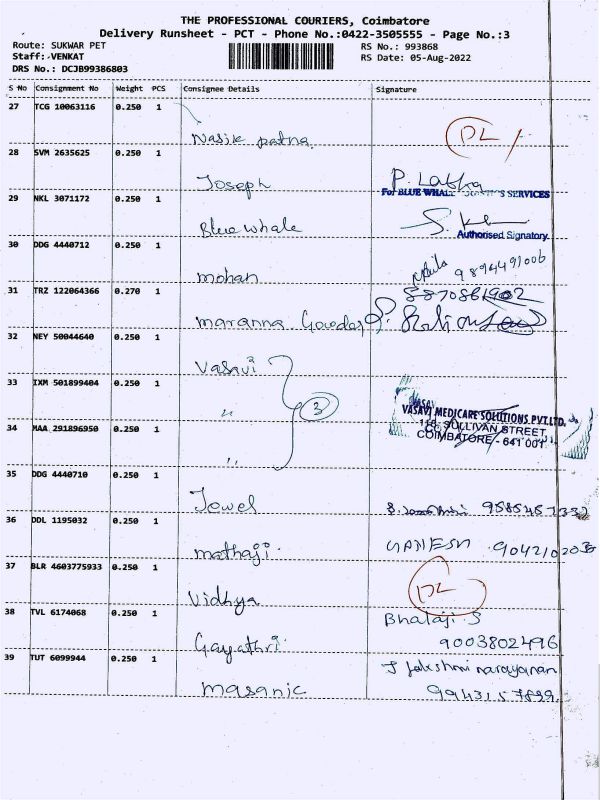 THE PROFESSIONAL COURIERS, Coimbatore
Delivery Runsheet - PCT - Phone No.:0422-3505555 - Page No.:3
Route: SUKWAR PET RS No.: 993868
Staff: VENKAT RS Date: 05-Aug-2022
DRS No.: DCJB99386803
S No Consignment No Weight PCS Consignee Details Signature
27 TCG 10063116 0.250 1
Nasik patna DL
28 SVM 2635625 0.250 1
Joseph P.
For BLUE WHALE SERVICES
29 NKL 3071172 0.250 1
Blue whale
Authorised Signatory
30 DDG 4440712 0.250 1
mohan 9894491006
31 TRZ 122064366 0.270 1 8870861902
maranna Gowder
32 NEY 50044640 0.250 1
Vasavi
33 IXM 501899404 0.250 1
" 3
VASAVI MEDICARE SOLUTIONS PVT.LTD.
34 MAA 291896950 0.250 1 SULLIVAN STREET
COIMBATORE - 641 001
"
35 DDG 4440710 0.250 1
Jewel
36 DDL 1195032 0.250 1
mathaji GANESH
37 BLR 4603775933 0.250 1
Vidhya DL
38 TVL 6174068 0.250 1 Bhalaji.S
Gayathri 9003802496
39 TUT 6099944 0.250 1 J lakshmi narayanan
masanic